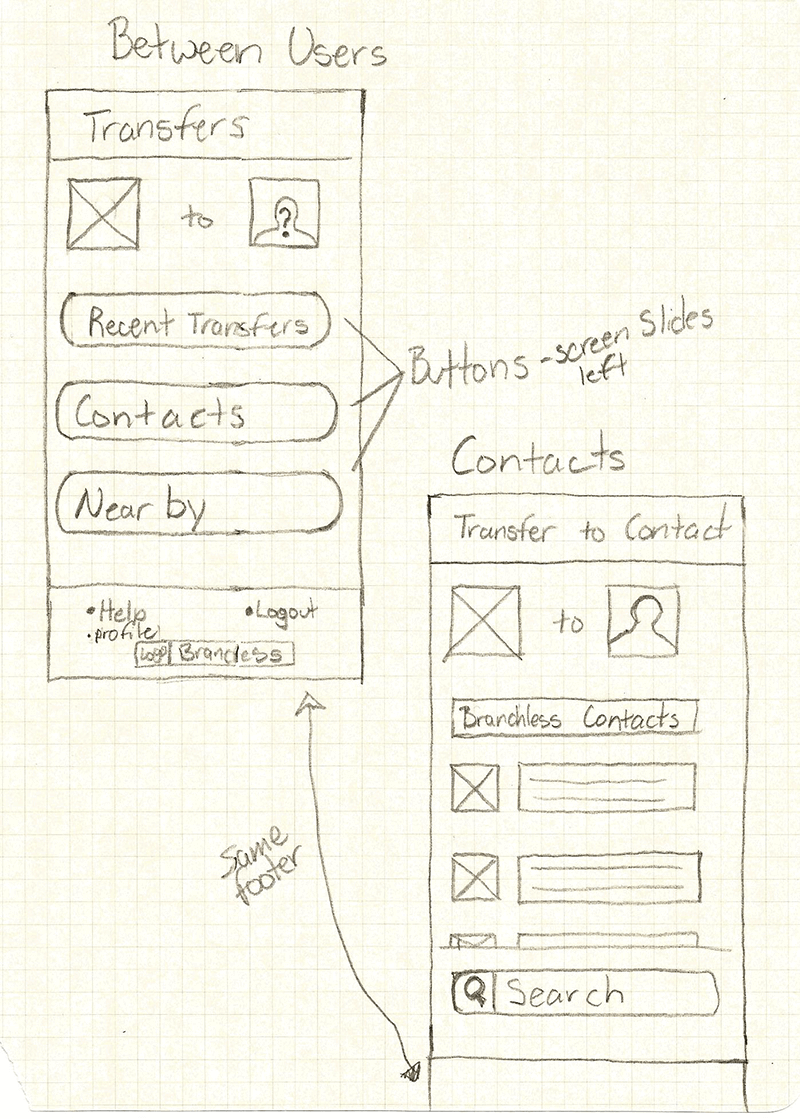 Between Users
Transfers
to
?
Recent Transfers
Contacts
Near by
Buttons - screen Slides
left
• Help
• Logout
• profile
Logo Brancless
Same
footer
Contacts
Transfer to Contact
to
Branchless Contacts
Search